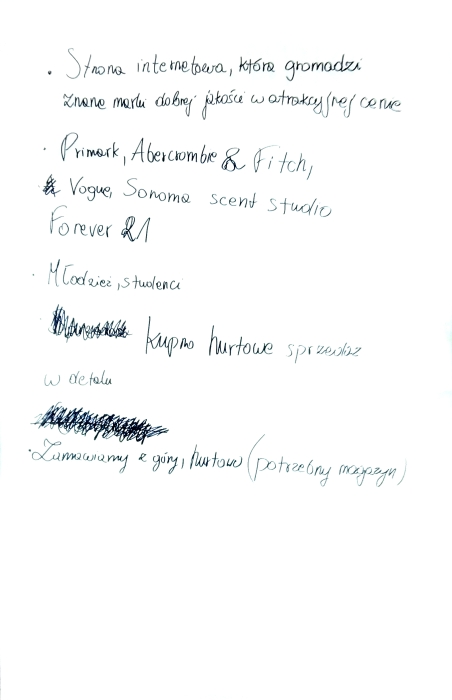 • Strona internetowa, która gromadzi
znane marki dobrej jakości w atrakcyjnej cenie
• Primark, Abercrombie & Fitch,
Vogue, Sonoma scent studio
Forever 21
• Młodzież, studenci
kupno hurtowe sprzedaż
w detalu
• Zamawiamy z góry, hurtowo (potrzebny magazyn)